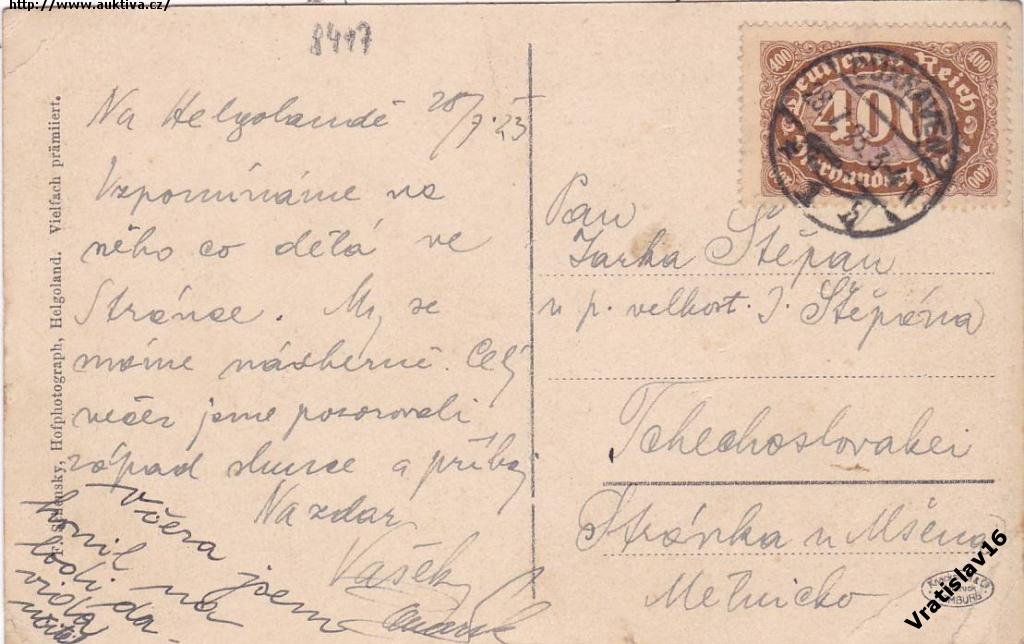 http://www.auktiva.cz/
8417
Na Helgolandě 28/7.23
Vzpomínáme na
něho co dělá ve
Stránce. My se
máme nádherně. Celý
večer jsme pozorovali
západ slunce a příboj
Nazdar
Vašek
Včera jsem
honil na
lodi da-
F. Schensky, Hofphotograph, Helgoland. Vielfach prämiiert.
Deutsches Reich
400
400
400
400
400
CUXHAVEN
Pan
Jarka Štěpán
u p. velkost. J. Štěpána
Tchechoslovakei
Stránka u Mšena
Mělnicko
HAMBURG
Vratislav16